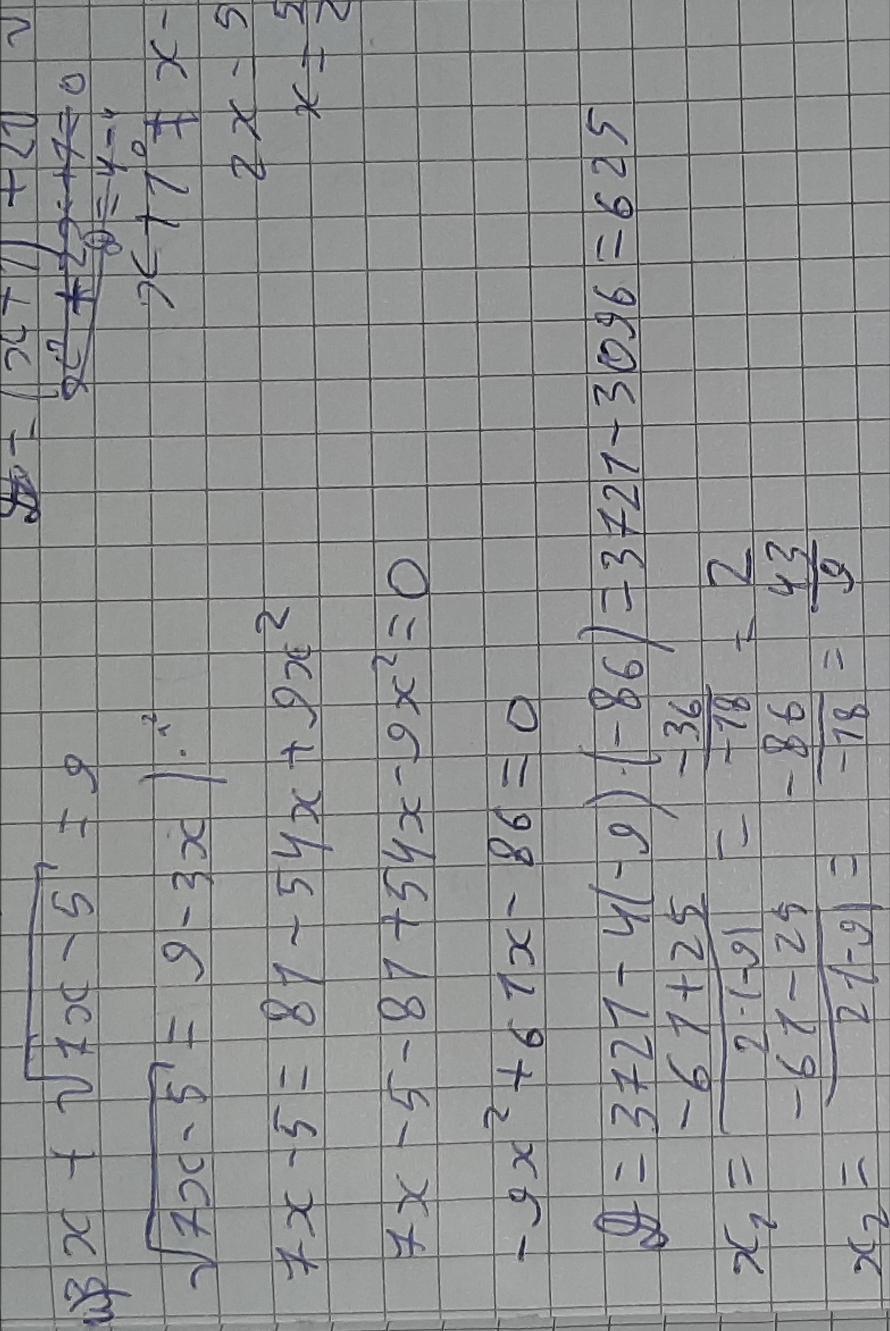 3x + √7x - 5 = 9
√7x - 5 = 9 - 3x )·²
7x - 5 = 81 - 54x + 9x²
7x - 5 - 81 + 54x - 9x² = 0
-9x² + 61x - 86 = 0
D = 3721 - 4(-9)·(-86) = 3721 - 3096 = 625
x₁ = -61+25 / 2·(-9) = -36 / -18 = 2
x₂ = -61-25 / 2(-9) = -86 / -18 = 43 / 9
x + 1 ≠ x -
2x - 5
x = 5 / 2